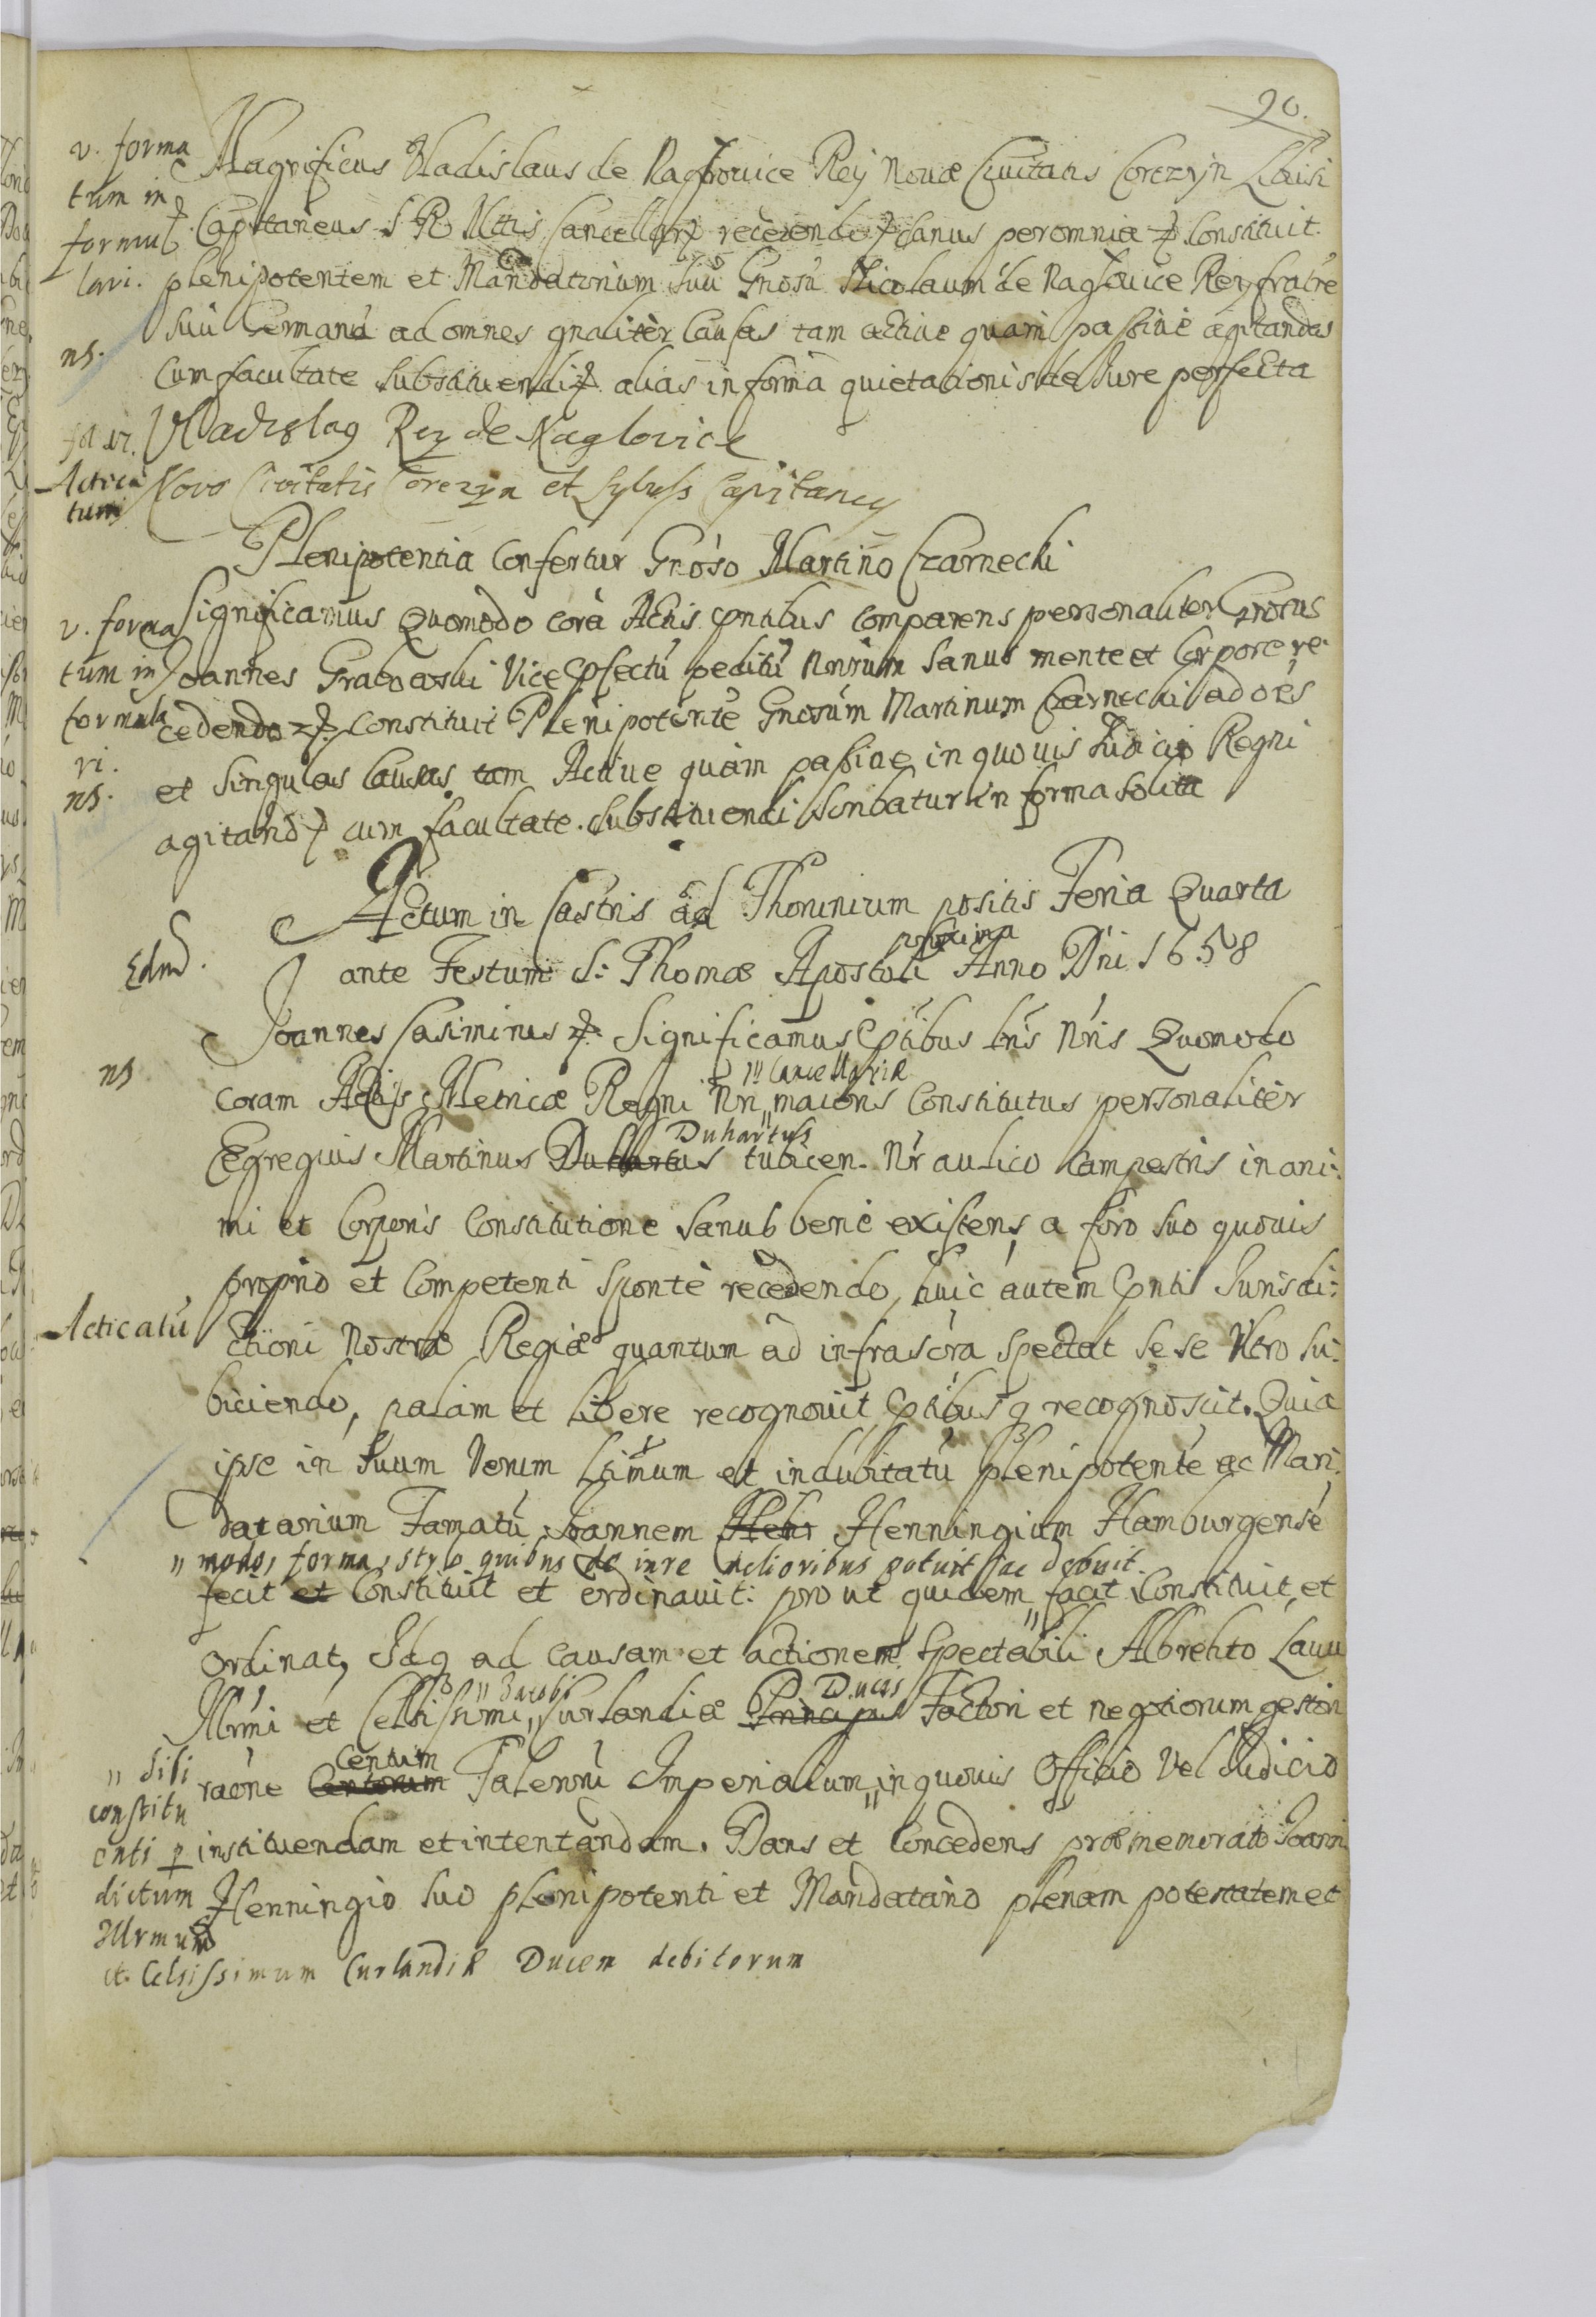 90.
v. forma
tum in
formul
lari.
Magnificus Vladislaus de Nagłovice Reÿ Novæ Civitatis Corczyn
Capitaneus S R Mttis Cancellar recedendo sanus per omnia Constituit
plenipotentem et Mandatarium suū Gnosū Nicolaum de Nagłovice Rey fratre
suū Germanū ad omnes gnalitèr Causas tam active quam passive agitandas
ns.
Cum facultate substituendi alias in forma quietationis de Iure perfecta
Vladislaꝯ Rey de Naglovice
Acticā
tum
Novo Civitatis Corczyn et Lybuss Capitaneꝯ
Plenipotentia Confertur Gnōso Martino Czarnecki
v. forma
tum in
formula
ri.
ns.
Significamus Quomodo corā Actis pntibus comparens personaliter Gnosus
Joannes Grabowski Vice pfectū peditū Nrorum sanus mente et Corpore re
cedendo Constituit Plenipotentē Gnosūm Martinum Czarnecki ad oēs
et singulas Causas tam Active quàm passive in quovis Iudicio Regni
agitand cum facultate substituendi scribatur in forma solita
Actum in Castris ad Thorunium positis Feria Quarta
proxima
ante Festum S: Thomæ Apostoli Anno Dni 1658
Joannes Casimirus Significamus pntibus lris Nris Quomodo
ns
" Cancellariæ
coram Actis Metricæ Regni Nri " maioris Constitutus personalitèr
Duhartus
Egregius Martinus Duhartus tubicen Nr aulico Campestris in ani:
mi et Corporis Constitutione Sanus bene existens, a foro suo quovis
proprio et Competenti Spontè recedendo, huic autem pntis Iurisdi:
Acticatū
ctioni Nostræ Regiæ quantum ad infrascra spectat se se Vltro su:
biciendo, palàm et libere recognovit, pntibusq recognoscit. Quia
ipse in Suum Verum Ltimum et indubitatū plenipotentē ac Man
datarium Famatū Joannem Henningium Hamburgensē
" modo, forma, stylo quibus de iure melioribus potuit ac debuit.
fecit et Constituit et ordinavit: pro ut quidem " facit Constituit, et
ordinat, Idq ad Causam et actionem Spectabili Albrehto Lauu
" Jacobi Ducis
Illrmi et Celsissimi " Curlandiæ Principis Factori et negotiorum gestori
Centum
raōne Centorum Talerorū Imperialium " in quovis Officio Vel Iudicio
" sibi
constitu
enti p
dictum
Illrmum
et Celsissimum Curlandiæ Ducem debitorum
instituendam et intentandam. Dans et Concedens præmemorato Joanni
Henningio suo plenipotenti et Mandatario plenam potestatem et